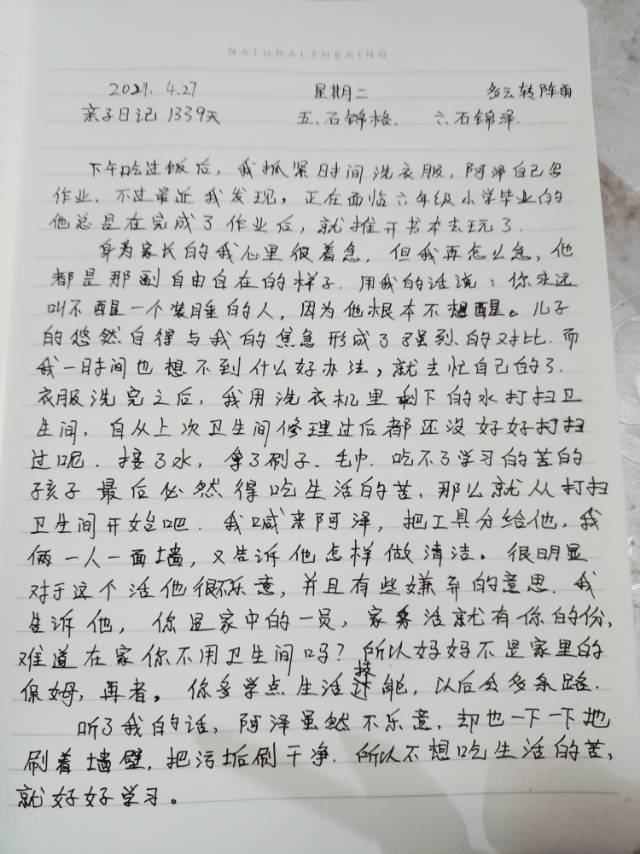 NATURALTHEKING
2021. 4.27 星期二 多云转阵雨
亲子日记 1339天 五.石锦格. 六石锦泽.
下午吃过饭后，我抓紧时间洗衣服，阿泽自己写
作业．不过最近我发现，正在面临六年级小学毕业的
他总是在完成了作业后，就推开书本去玩了．
身为家长的我心里很着急，但我再怎么急，他
都是那副自由自在的样子．用我的话说：你永远
叫不醒一个装睡的人，因为他根本不想醒。儿子
的悠然自得与我的焦急形成了强烈的对比．而
我一时间也想不到什么好办法，就去忙自己的了．
衣服洗完之后，我用洗衣机里剩下的水打扫卫
生间，自从上次卫生间修理过后都还没好好打扫
过呢．接了水，拿了刷子．毛巾．吃不了学习的苦的
孩子最后必然得吃生活的苦，那么就从打扫
卫生间开始吧．我喊来阿泽，把工具分给他，我
俩一人一面墙，又告诉他怎样做清洁。很明显
对于这个活他很不乐意，并且有些嫌弃的意思．我
告诉他，你是家中的一员，家务活就有你的份，
难道在家你不用卫生间吗？所以好好不是家里的
保姆，再者，你多学点生活技能，以后会多条路．
听了我的话，阿泽虽然不乐意，却也一下一下地
刷着墙壁，把污垢刷干净．所以不想吃生活的苦，
就好好学习。